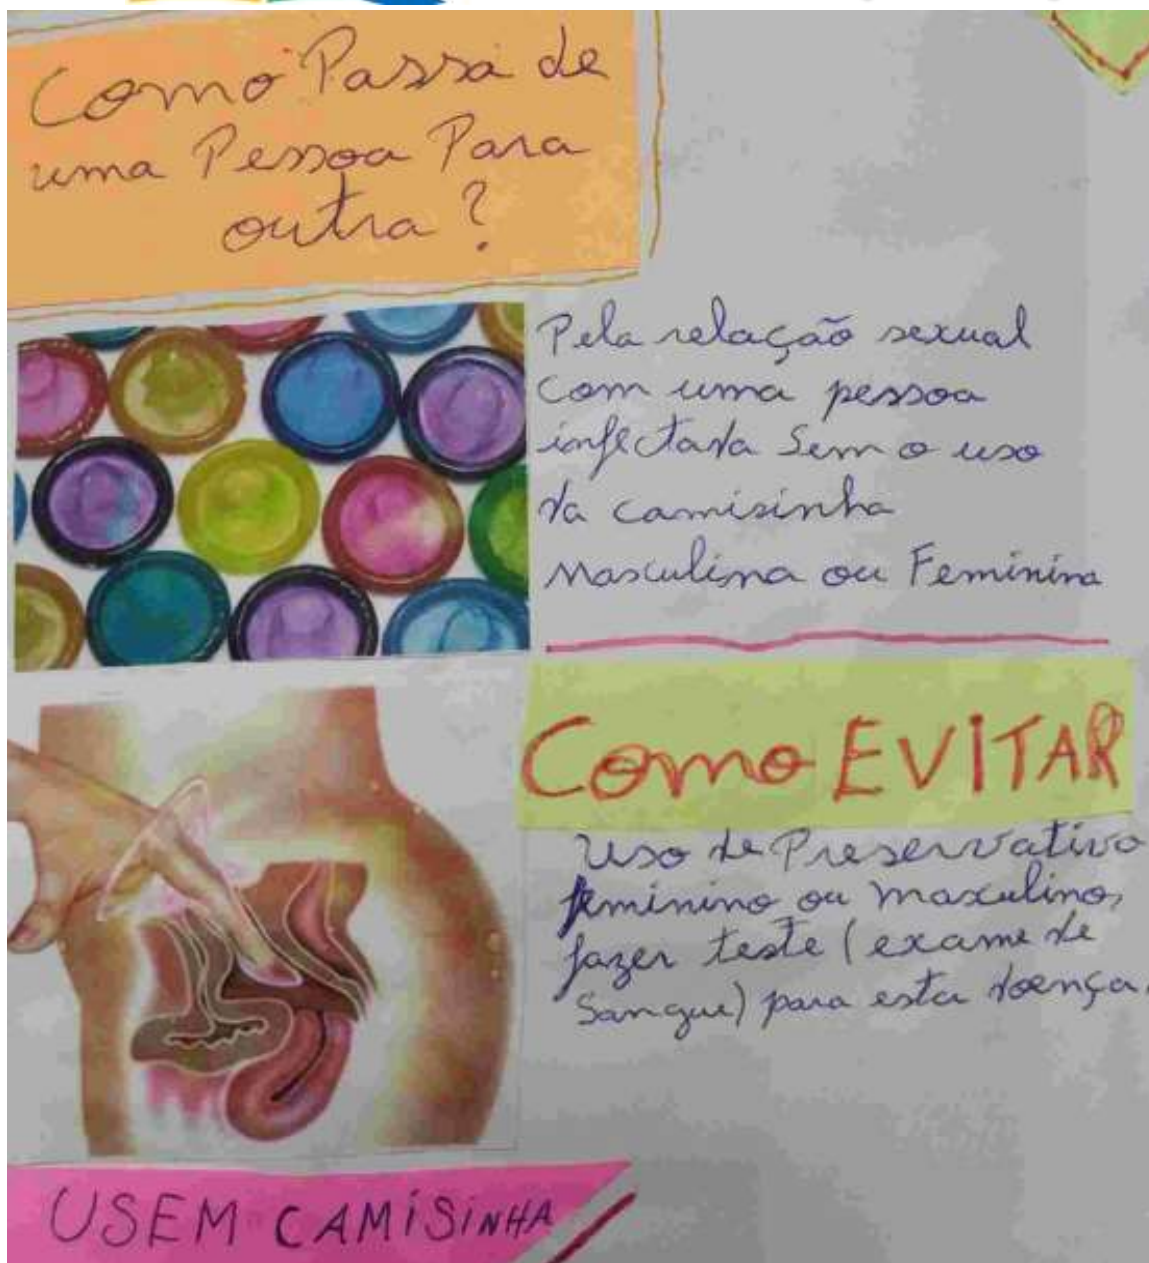 Como Passa de
uma Pessoa Para
outra?
Pela relação sexual
com uma pessoa
infectada Sem o uso
da camisinha
Masculina ou Feminina
Como EVITAR
Uso de Preservativo
feminino ou masculino,
fazer teste (exame de
Sangue) para esta doença.
USEM CAMISINHA